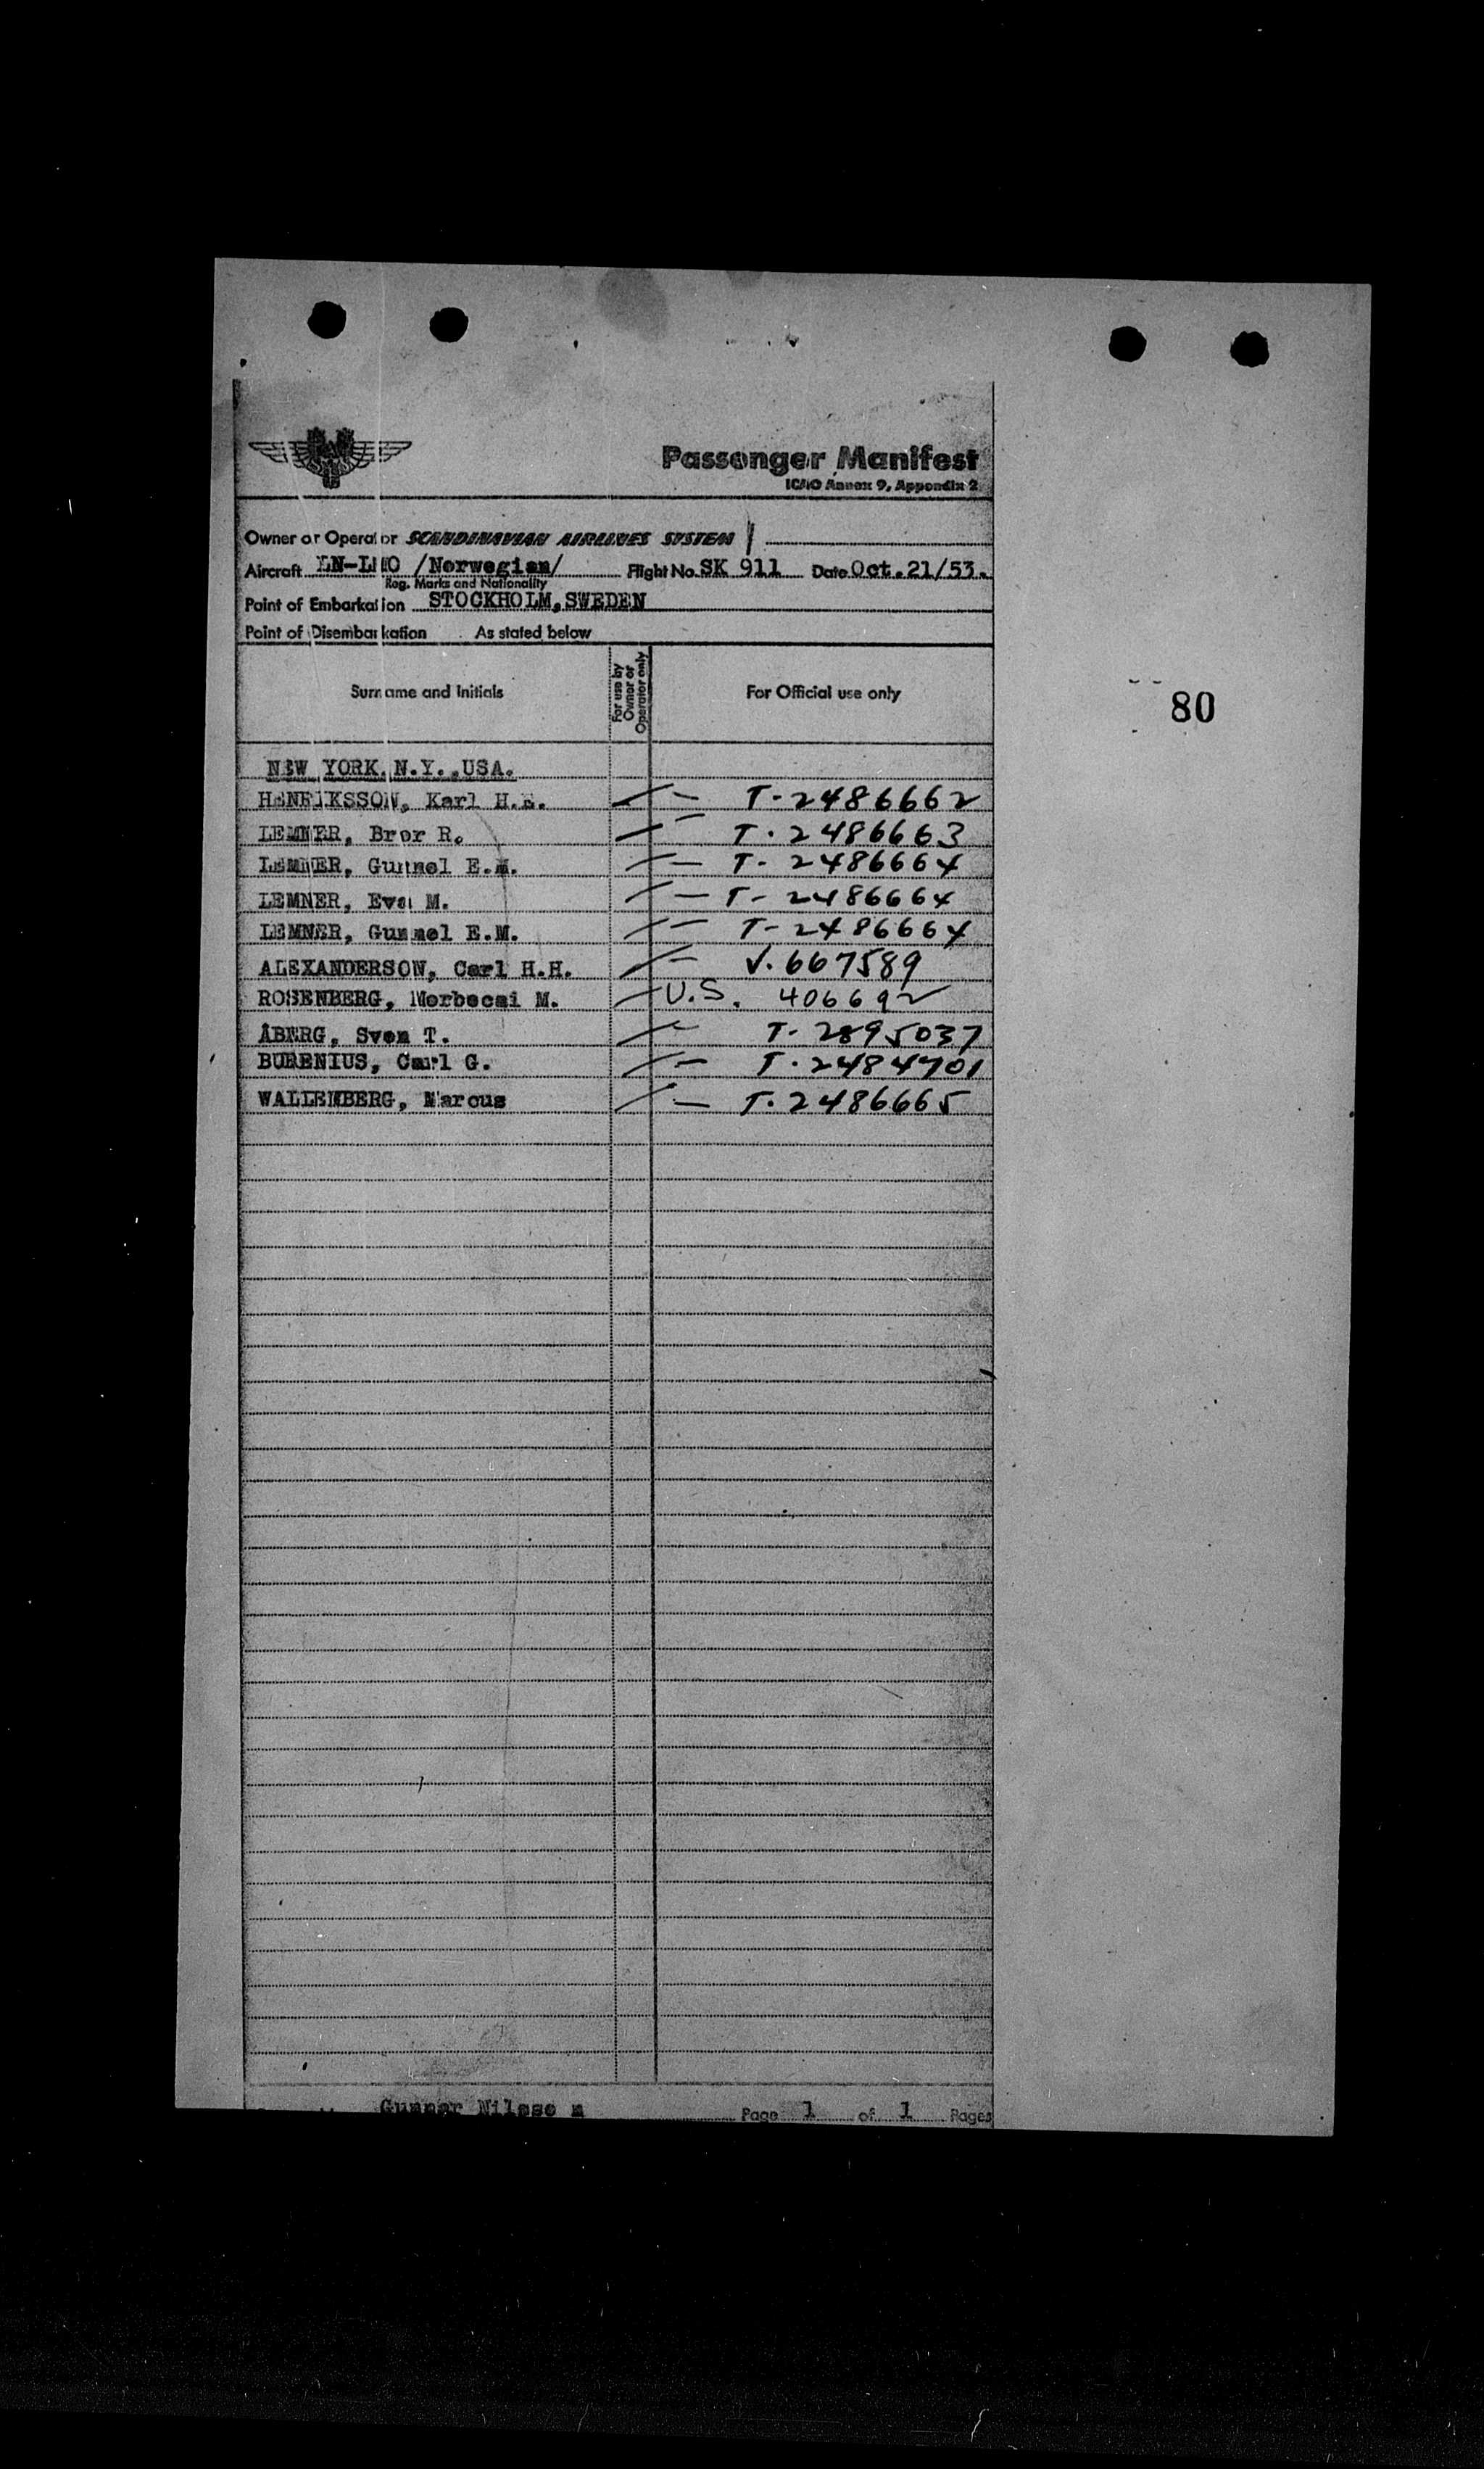 Passenger Manifest
ICAO Annex 9, Appendix 2
Owner or Operator SCANDINAVIAN AIRLINES SYSTEM
Aircraft /Norwegian/ Flight No. SK 911 Date Oct. 21/53.
Reg. Marks and Nationality
Point of Embarkation STOCKHOLM, SWEDEN
Point of Disembarkation As stated below
Surname and Initials For use by Owner or Operator only For Official use only
80
NEW YORK, N.Y., USA.
HENRIKSSON, Karl H.E. T-2486662
LEMNER, Bror R. T. 2486663
LEMNER, Gunnel E.M. T- 2486664
LEMNER, Eva M. T- 2486664
LEMNER, Gunnel E.M. T-2486664
ALEXANDERSON, Carl H.H. V. 667589
ROSENBERG, Morbecai M. U.S. 406692
ÅBERG, Sven T. T- 2895037
BURENIUS, Carl G. T. 2484701
WALLENBERG, Marcus T. 2486665
Gunnar Nilsso n Page 1 of 1 Pages